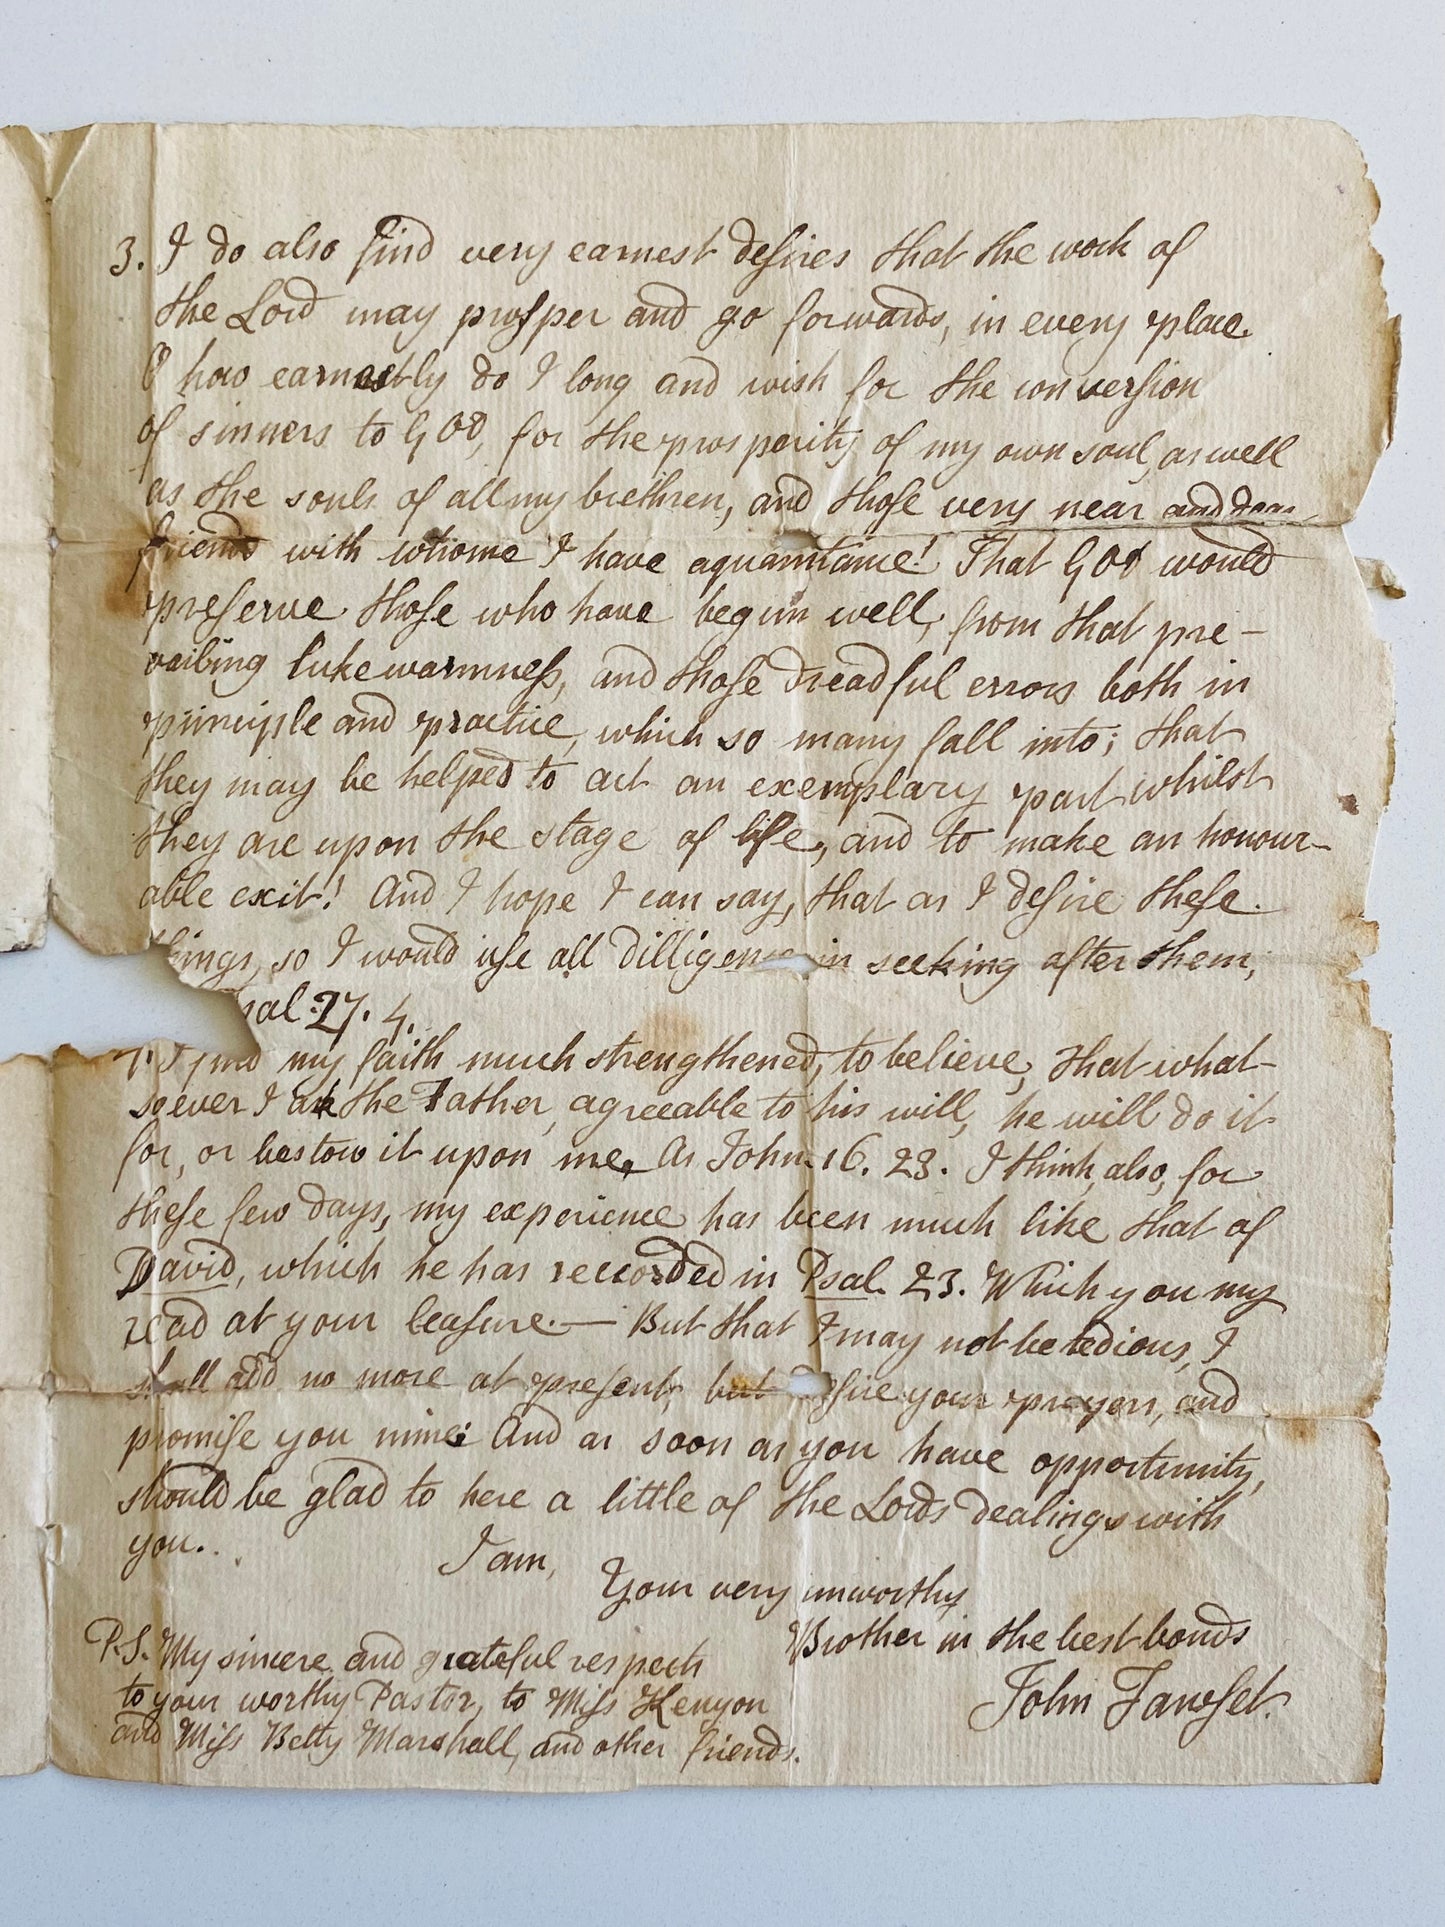 3. I do also find very earnest deſires that the work of
the Lord may proſper and go forwards, in every place.
O how earnestly do I long and wish for the converſion
of sinners to GOD, for the prosperity of my own soul, as well
as the souls of all my brethren, and thoſe very near and dear
friends with whome I have aquaintance! That GOD would
preſerve thoſe who have begun well, from that pre-
vailing lukewarmneſs, and thoſe dreadful errors both in
principle and practice, which so many fall into; that
they may be helped to act an exemplary part whilst
they are upon the stage of life, and to make an honour-
able exit! And I hope I can say, that as I deſire theſe
things, so I would uſe all dilligence in seeking after them,
sal. 27. 4.
I find my faith much strengthened, to believe, that what-
soever I ask the Father, agreeable to his will, he will do it
for, or bestow it upon me, As John 16. 23. I think, also, for
theſe few days, my experience has been much like that of
David, which he has recorded in Psal. 23. Which you my
read at your leaſure. — But that I may not be tedious, I
shall add no more at preſent, but ſire your prayers, and
promiſe you mine: And as soon as you have opportunity,
should be glad to here a little of the Lords dealings with
you.
I am,
Your very unworthy
Brother in the best bonds
John Fawſet.
P.S. My sincere and grateful respects
to your worthy Pastor, to Miſs Kenyon
and Miſs Betty Marshall, and other friends.